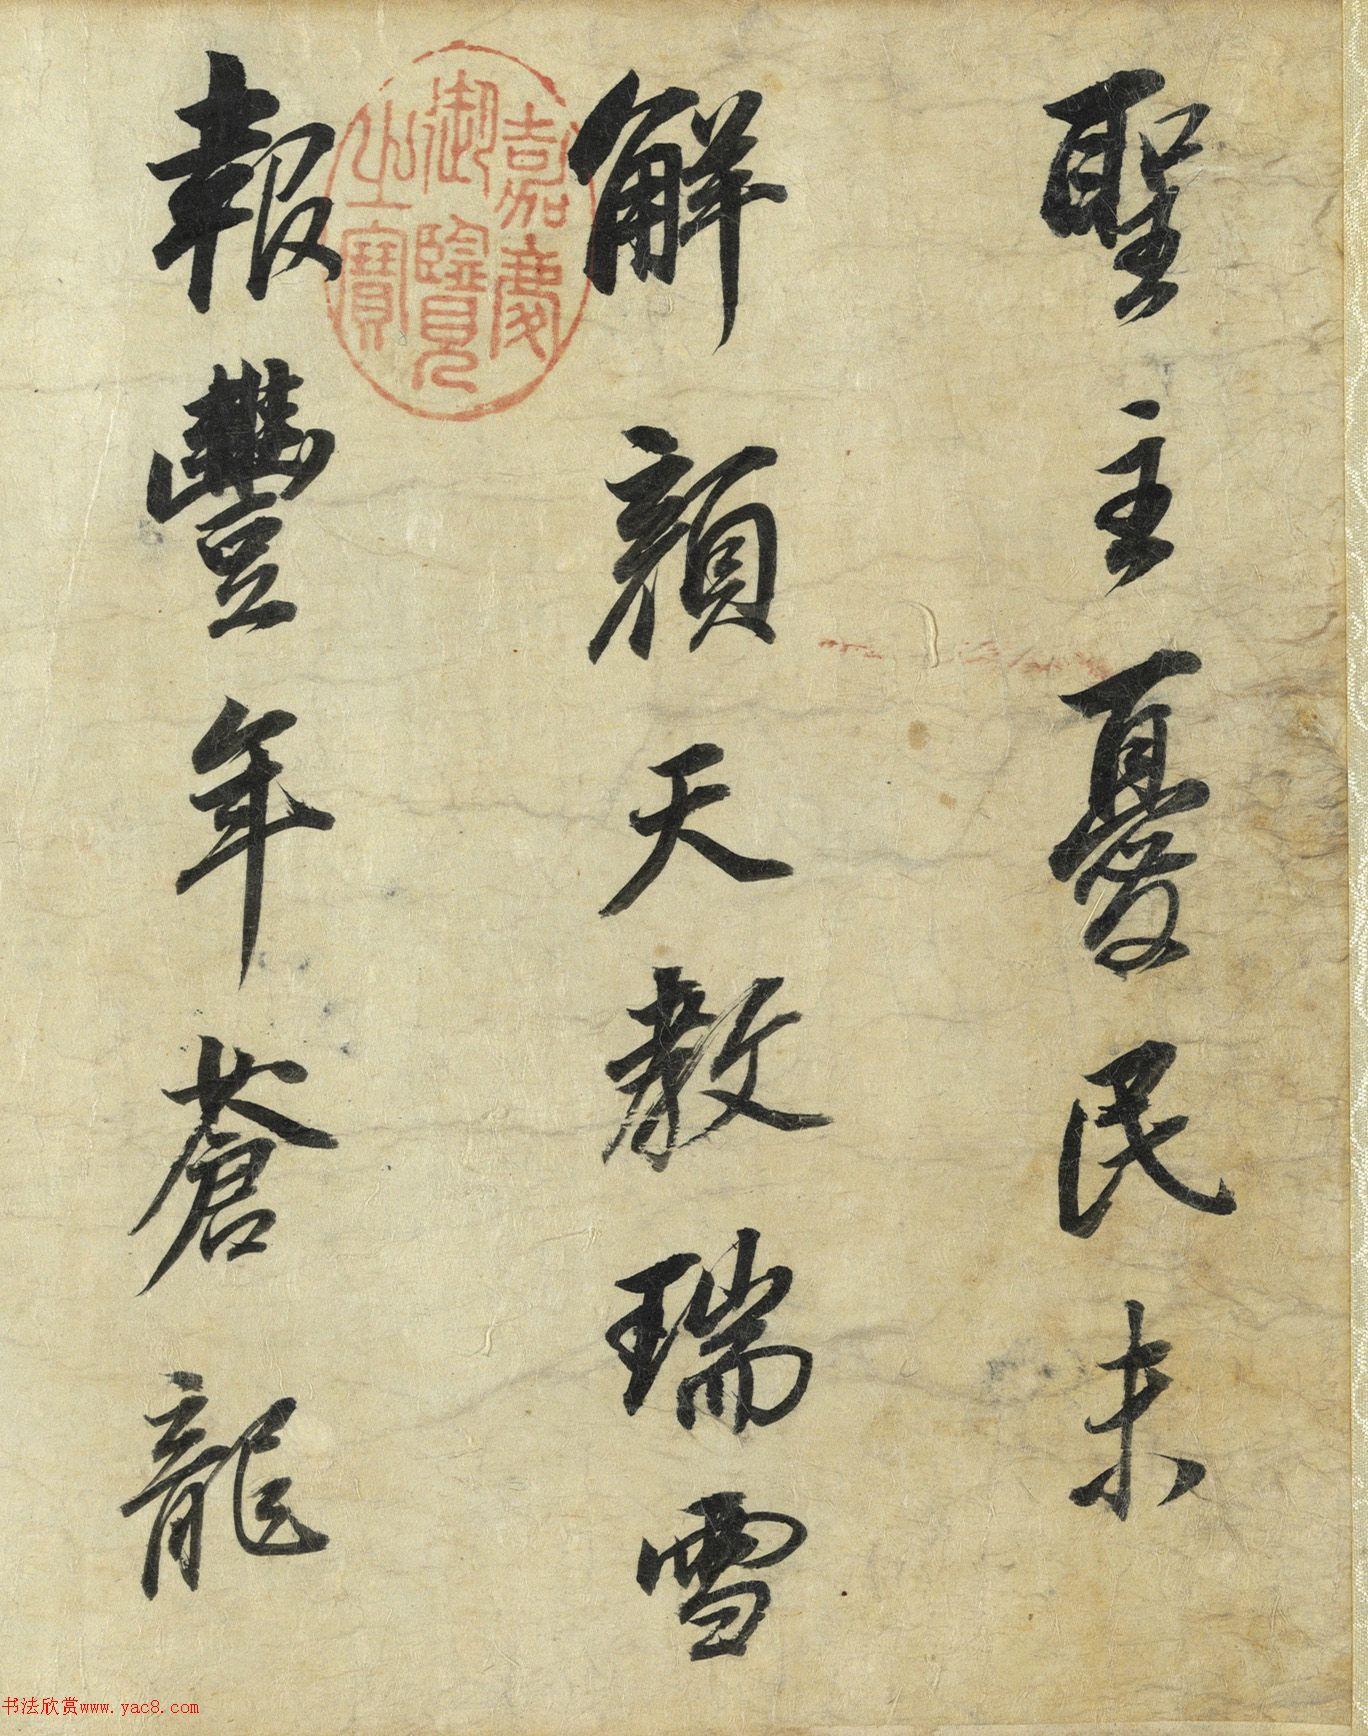 聖主憂民未
解顏天教瑞雪
報豐年蒼龍
嘉慶
御覽
之寶
书法欣赏www.yac8.com